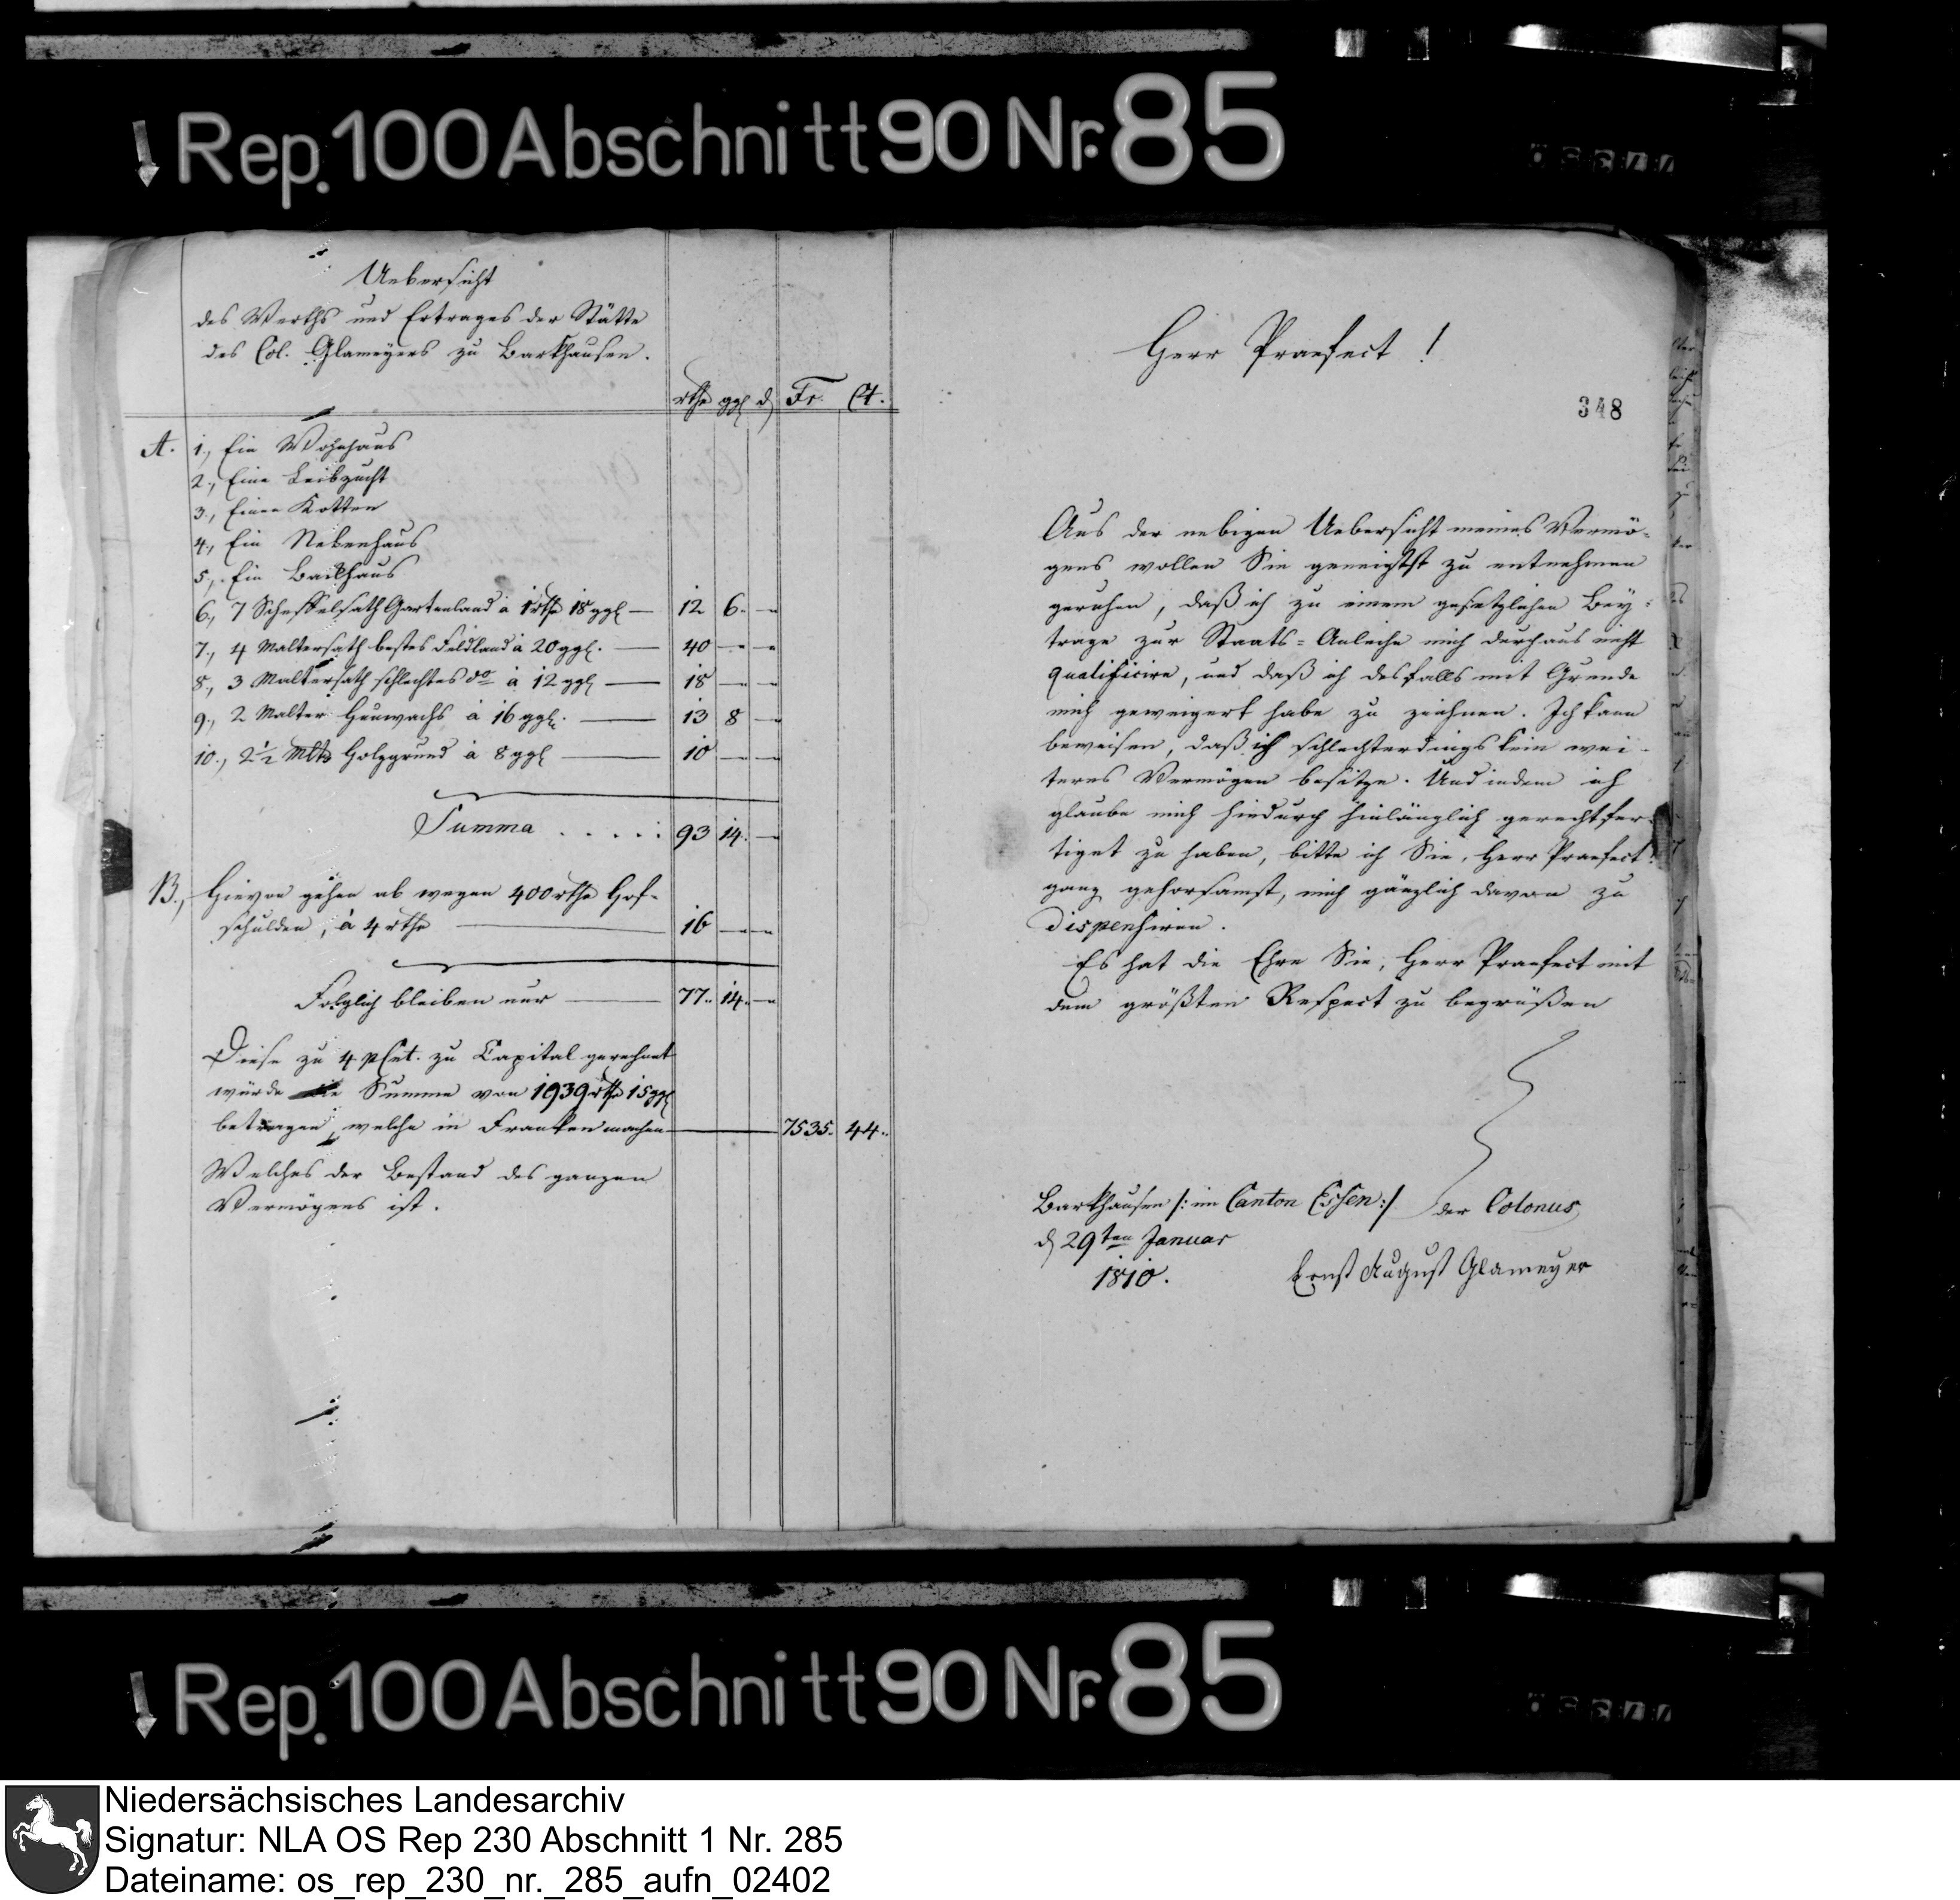 Rep. 100 Abschnitt 90 Nr. 85
Uebersicht
des Werths und Ertrages der Stätte
des Col. Glameyers zu Barkhausen.
rthr ggl d Fr. Ct.
A. 1., Ein Wohnhaus
2., Eine Leibzucht
3., Einen Kotten
4., Ein Nebenhaus
5., Ein Backhaus
6., 7 Scheffelsath Gartenland à 1 rthr 18 ggl — 12 6. —
7., 4 Maltersath bestes Feldland à 20 ggl. — 40 — —
8., 3 Maltersath schlechtes do à 12 ggl — 18 — —
9., 2 Malter Heuwachs à 16 ggl. — 13 8 —
10., 2 1/2 Mltr Holzgrund à 8 ggl — 10 — —
Summa . . . . : 93 14. —
B., Hievon gehen ab wegen 400 rthr Hof-
schulden, à 4 rthr — 16 — —
Folglich bleiben nur — 77.. 14.. —
Diese zu 4 pCnt. zu Capital gerechnet
würde die Summe von 1939 rthr 15 ggl
betragen, welche in Franken machen — 7535. 44..
Welches der Bestand des ganzen
Vermögens ist.
Herr Praefect !
348
Aus der nebigen Uebersicht meines Vermö-
gens wollen Sie geneigtst zu entnehmen
geruhen, daß ich zu einem gesetzlichen Bey-
trage zur Staats=Anleihe mich durchaus nicht
qualificire, und daß ich desfalls mit Grunde
mich geweigert habe zu zeichnen. Ich kann
beweisen, daß ich schlechterdings kein wei-
teres Vermögen besitze. Und indem ich
glaube mich hiedurch hinlänglich gerechtfer-
tiget zu haben, bitte ich Sie, Herr Praefect!
ganz gehorsamst, mich gänzlich davon zu
dispensiren.
Es hat die Ehre Sie, Herr Praefect mit
dem größten Respect zu begrüßen
Barkhausen /: im Canton Essen :/ der Colonus
d 29ten Januar
1810. Ernst August Glameyer
Rep. 100 Abschnitt 90 Nr. 85
Niedersächsisches Landesarchiv
Signatur: NLA OS Rep 230 Abschnitt 1 Nr. 285
Dateiname: os_rep_230_nr._285_aufn_02402